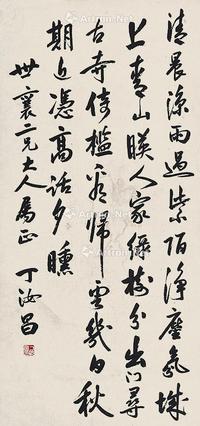 清晨涼雨過紫陌淨塵氛城
上青山暎人家綠樹分出門尋
古寺倚檻看歸雲幾日秋
期近憑高話夕曛
世襄二兄大人屬正 丁汝昌